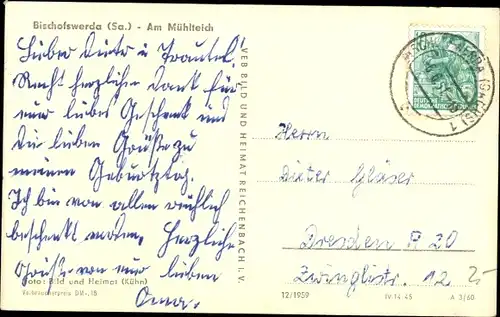 Bischofswerda (Sa.) - Am Mühlteich
Lieber Dieter u. Traudel!
Recht herzlichen Dank für
eure liebes Geschenk und
die lieben Grüße zu
meinem Geburtstag.
Ich bin von allen reichlich
beschenkt worden. Herzliche
Grüße von eurer lieben
Oma.
Foto: Bild und Heimat (Kühn)
Verbraucherpreis DM -,15
VEB BILD UND HEIMAT REICHENBACH I. V.
12/1959
IV-14-45
A 3/60
Herrn
Dieter Gläser
Dresden A 20
Zwinglistr. 12
2,-